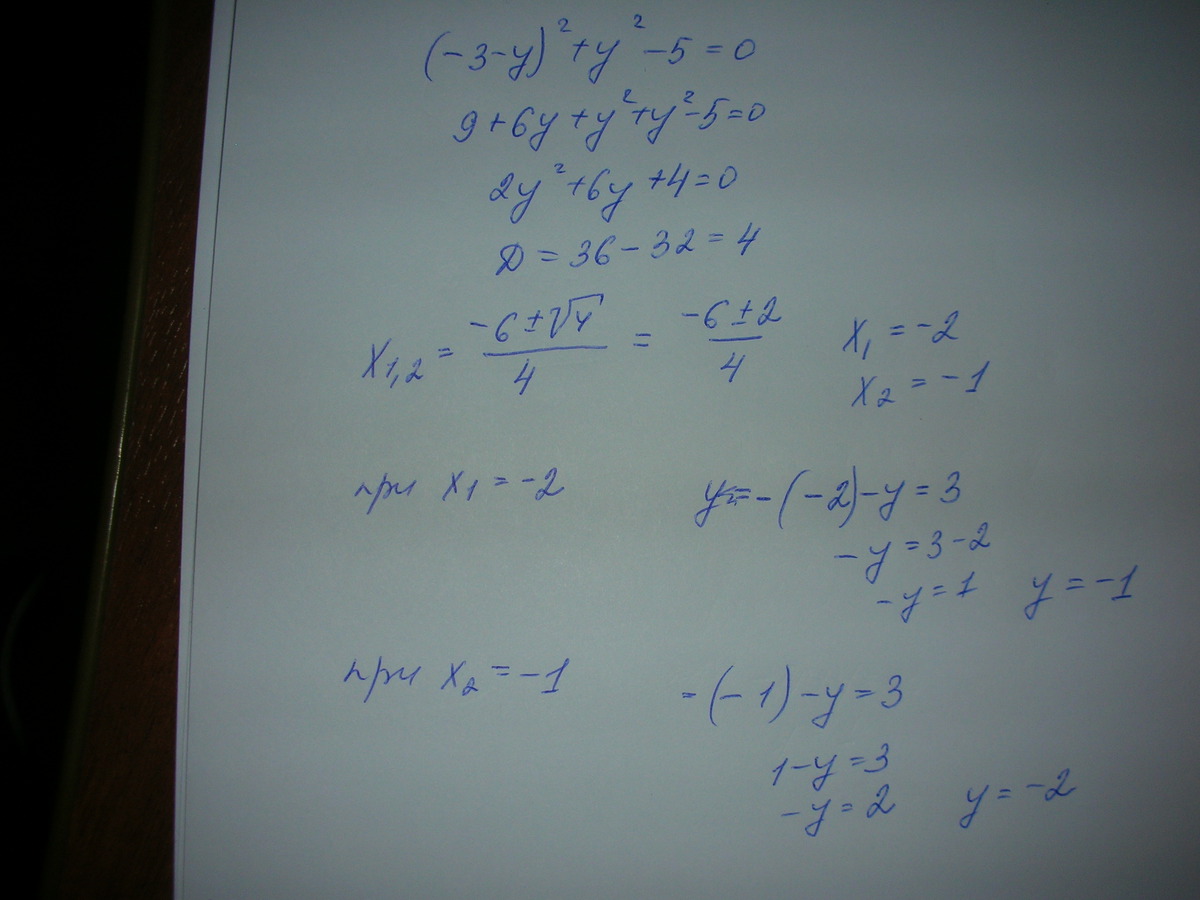 (-3-y)²+y²-5=0
9+6y+y²+y²-5=0
2y²+6y+4=0
D=36-32=4
X₁,₂ = (-6±√4)/4 = (-6±2)/4 X₁ = -2
X₂ = -1
при X₁ = -2 y = -(-2)-y=3
-y=3-2
-y=1 y=-1
при X₂ = -1 -(-1)-y=3
1-y=3
-y=2 y=-2